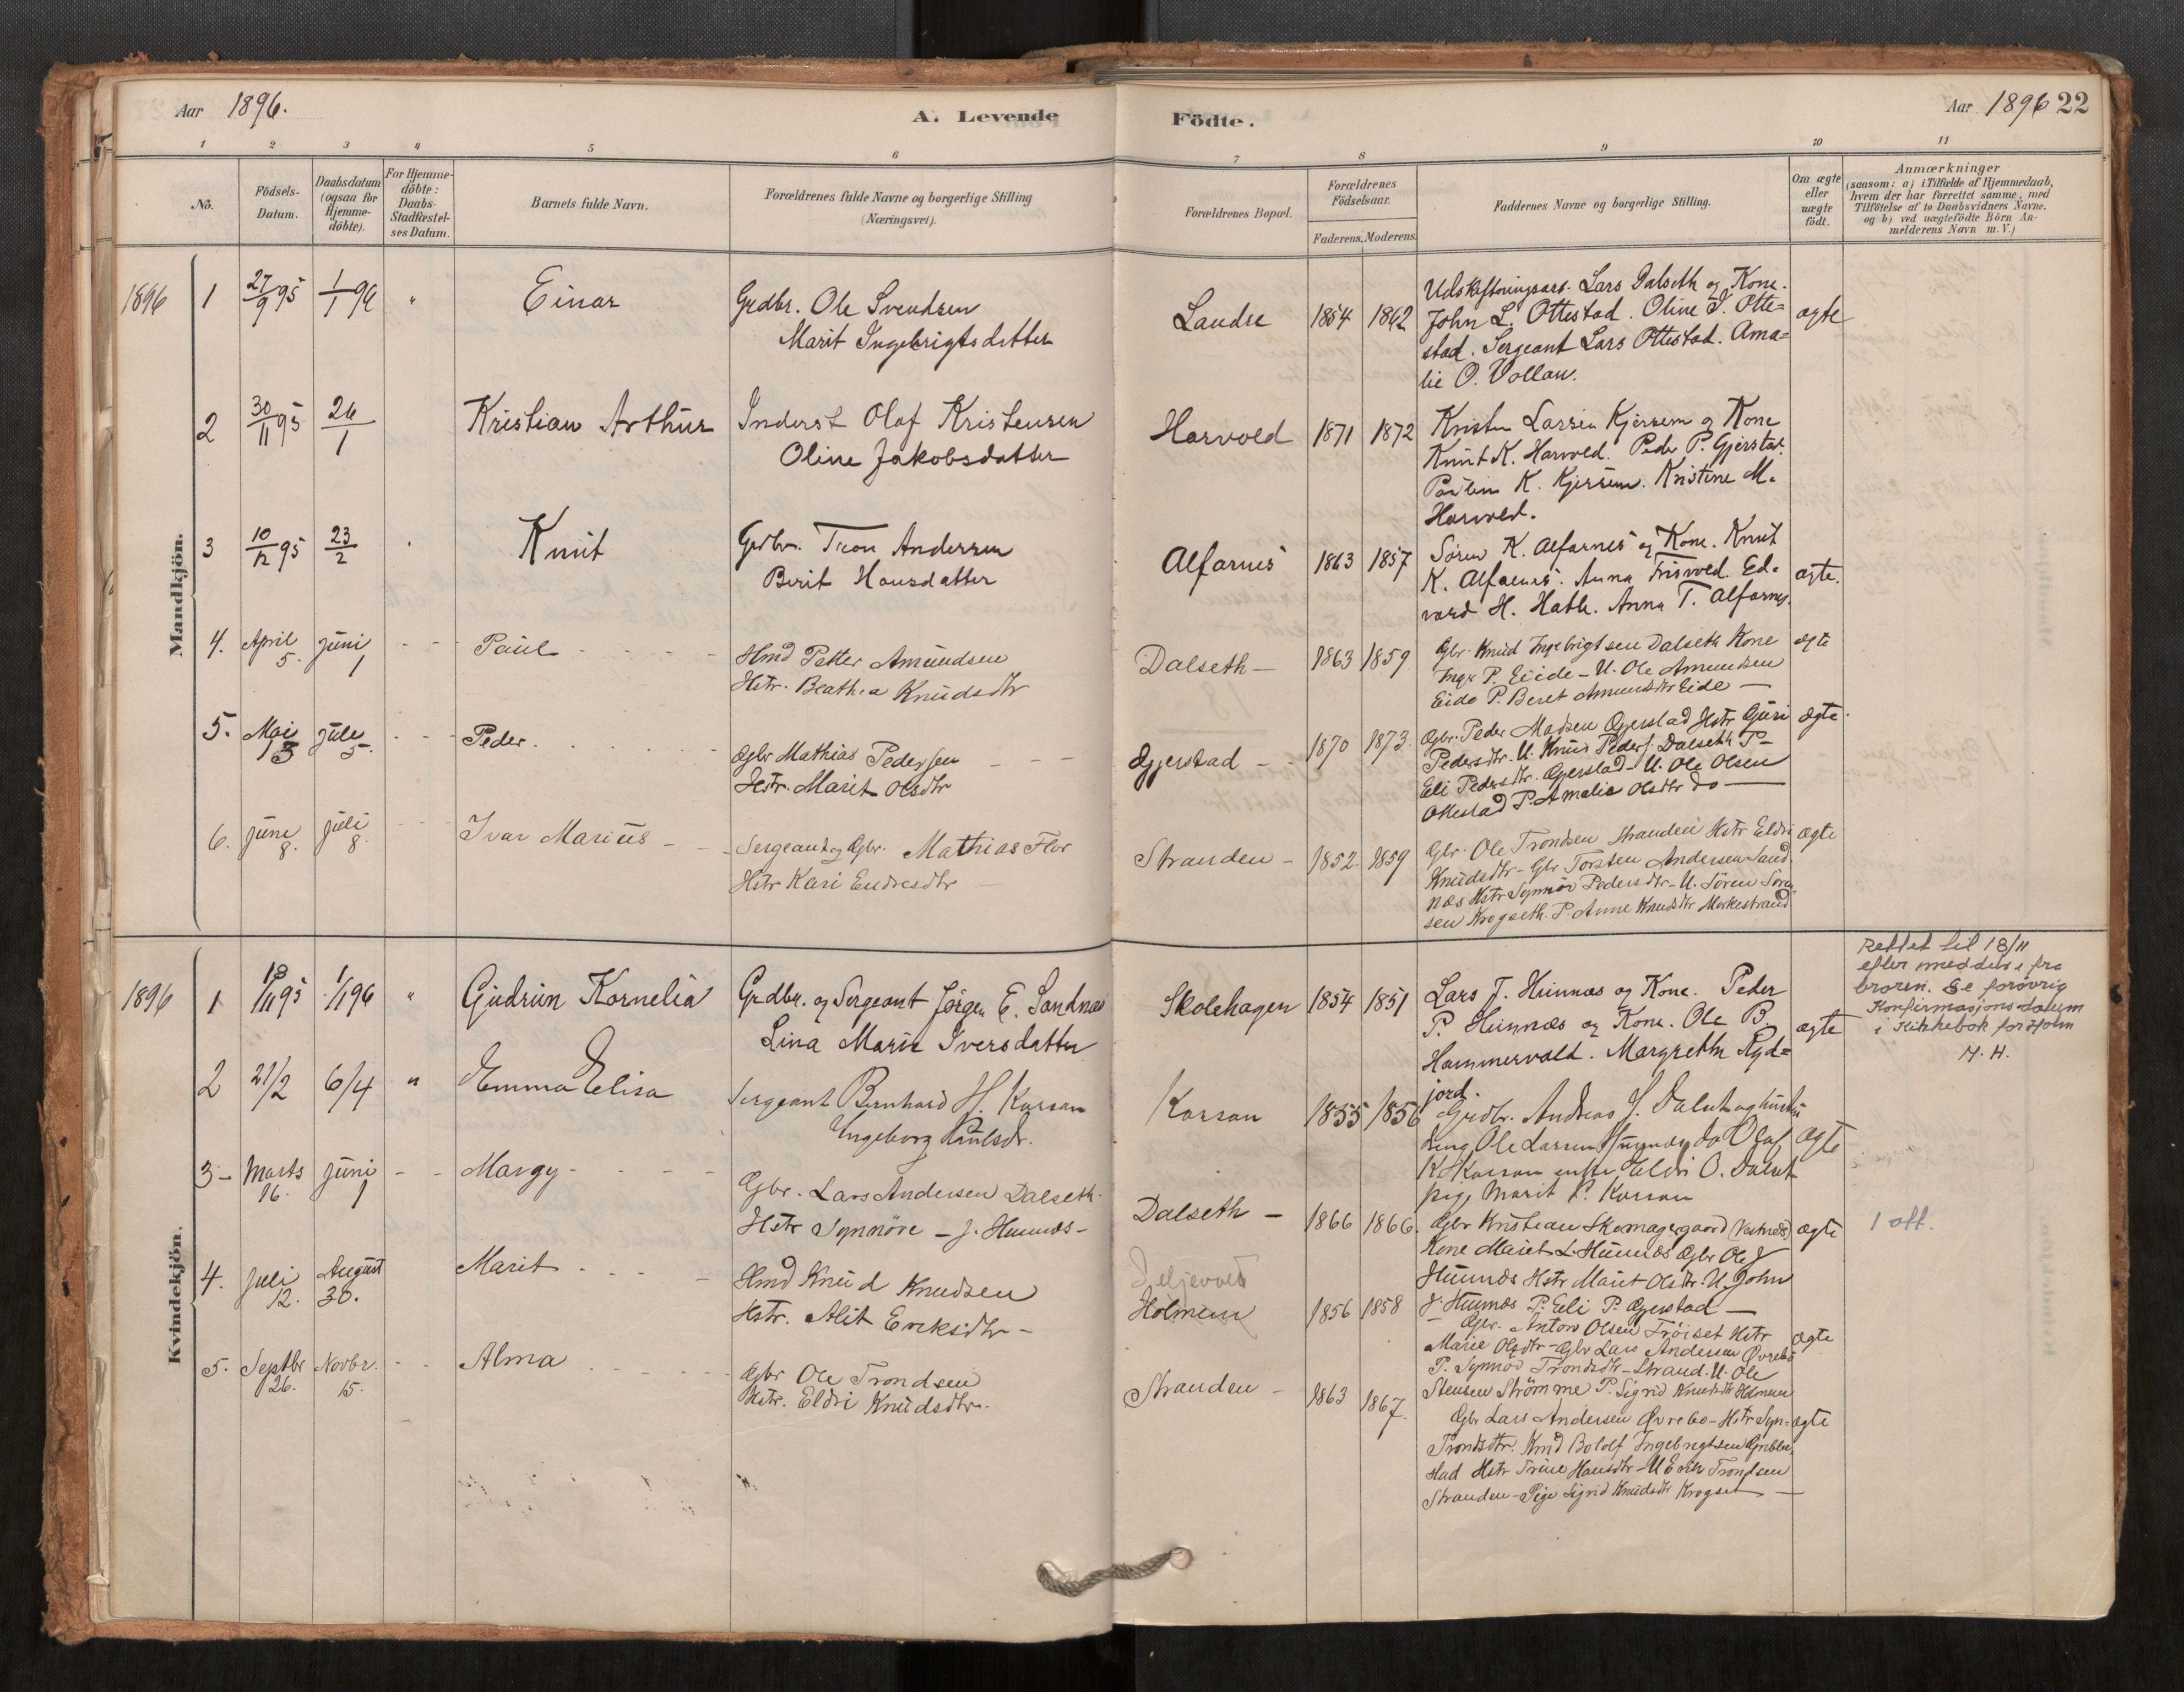 Aar 1896.
A. Levende
Födte.
Aar 1896 22
1 2 3 4 5 6 7 8 9 10 11
No.
Födsels-
Datum.
Daabsdatum
(ogsaa for
Hjemme-
döbte).
For Hjemme-
döbte:
Daabs-
Stadfæstel-
ses Datum.
Barnets fulde Navn.
Forældrenes fulde Navne og borgerlige Stilling
(Næringsvei).
Forældrenes Bopæl.
Forældrenes
Födselsaar.
Faderens. Moderens.
Faddernes Navne og borgerlige Stilling.
Om ægte
eller
uægte
födt.
Anmærkninger
(saasom: a) i Tilfælde af Hjemmedaab,
hvem der har forrettet samme, med
Tilföielse af to Daabsvidners Navne.
og b) ved uægtefödte Börn An-
melderens Navn m. V.)
Mandkjön.
1896 1 27/9 95 1/1 96 " Einar
Grdbr. Ole Svendsen
Marit Ingebrigtsdatter
Landre 1854 1862
Lars Dalseth og Kone.
John L. Ottestad. Oline I. Otte=
stad. Sergeant Lars Ottestad. Ama=
lie O. Vollan.
ægte
2 30/11 95 26/1 Kristian Arthur
Inderst Olaf Kristensen
Oline Jakobsdatter
Harvold 1871 1872
Kristen Larsen Kjersem og Kone
Knut K. Harvold. Peder P. Gjerstad.
K. Kjersem. Kristine M.
Harvold.
3 10/12 95 23/2 Knut
Grdbr. Tron Andersen
Berit Hansdatter
Alfarnes 1863 1857
Sören K. Alfarnes og Kone. Knut
K. Alfarnes. Anna Frisvold. Ed-
vard H. Hatle. Anna T. Alfarnes.
ægte.
4. April 5. Juni 1 - - Paul
Hmd Petter Amundsen
Hstr. Beathea Knudsdtr
Dalseth - 1863 1859
Gbr. Knud Ingebrigtsen Dalseth Kone
Inger P. Eide - U. Ole Amundsen
Eide P. Beret Amundsdtr Eide -
ægte
5. Mai 3 Juli 5. - - Peder.
Gbr Mathias Pedersen
Hstr. Marit Olsdtr
Gjerstad - 1870 1873.
Gbr. Peder Madsen Gjerstad Hstr Guri
Pedersdtr. U. Knud Peders. Dalseth P-
Eli Pedersdtr. Gjerstad - U. Ole Olsen
Ottestad P. Amalia Olsdtr do -
ægte.
6. Juni 8. Juli 8. Ivar Marius -
Sergeant og Gbr. Mathias Flor
Hstr Kari Endresdtr -
Stranden - 1852. 1859
Gbr. Ole Trondsen Stranden Hstr Eldri
Knudsdtr - Gbr Torsten Andersen Sand
næs Hstr Synnöv Pedersdtr - U. Sören Sören
sen Krogseth. P. Anne Knudsdtr Morkestrand
ægte
Kvindekjön.
1896 1 18/11 95 1/1 96 " Gudrun Kornelia
Grdbr. og Sergeant Jörgen E. Sandnæs
Lina Marie Iversdatter
Skolehagen 1854 1851
Lars J. Hunnæs og Kone. Peder
P. Hunnæs og Kone. Ole B.
Hammervold. Margrethe Ryd=
jord.
ægte
Rettet til 18/11
efter meddelse fra
broren. Se forövrig
Konfirmasjonsdatum
i Kirkebok for Holm
H. H.
2 21/2 6/4 " Emma Elisa
Sergeant Bernhard H. Korsan
Ingeborg Paulsdr.
Korsan 1855 1856
Grdbr. Andreas J. Dalset og hustru
Ole Larsen
K. Korsan enke Eldri O. Dalset
pige Marit P. Korsan
ægte
3 - Marts 16. Juni 1 - - Margy -
Gbr. Lars Andersen Dalseth.
Hstr Synnöve - J. Hunnæs -
Dalseth - 1866 1866.
Gbr Kristian Skomagergaard (Vestnes)
Kone Marit L. Hunnæs Gbr Ole J
Hunnæs Hstr Marit Olsdtr. U. John
J. Hunnæs P. Eli P. Gjerstad -
ægte
1 att.
4. Juli 12. August 30. Marit
Hmd Knud Knudsen
Hstr. Alit Eriksdtr -
Holmem 1856 1858
Gbr. Anton Olsen Tröiset Hstr
Marie Olsdtr - Gbr Lars Andersen Övrebö
P. Synnöv Trondsdtr - Strand. U. Ole
Stensen Strömme P. Sigrid Knudsdtr Holmem
ægte
5. Septbr 26. Novbr. 15. - - Alma
Gbr Ole Trondsen
Hstr. Eldri Knudsdtr.
Stranden - 1863 1867.
Gbr Lars Andersen Övrebö - Hstr Syn-
Trondsdtr. Hmd Bololf Ingebrigtsen Gribbe
stad Hstr Trine Hansdtr - U Erik Trondsen
Stranden - Pige Sigrid Knudsdtr Krogset -
ægte